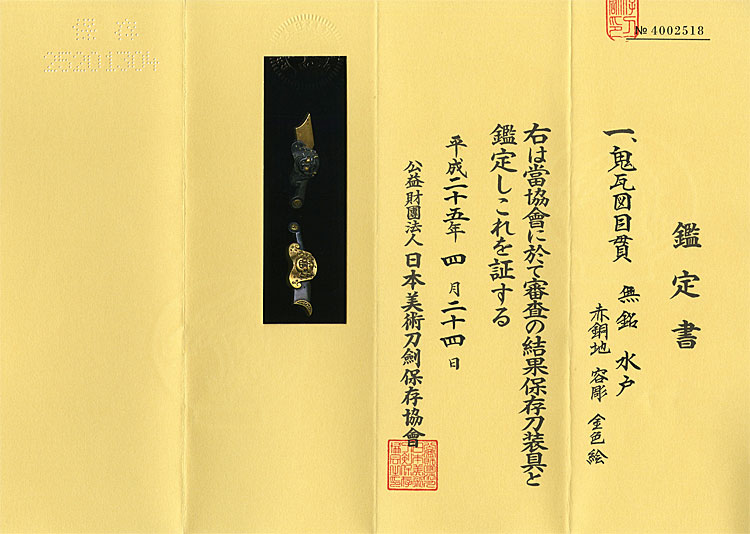 № 4002518
鑑定書
一、鬼瓦図目貫 無銘 水戸
赤銅地 容彫 金色絵
右は當協會に於て審査の結果保存刀装具と
鑑定しこれを証する
平成二十五年 四月二十四日
公益財團法人 日本美術刀劍保存協會
保存
25201304